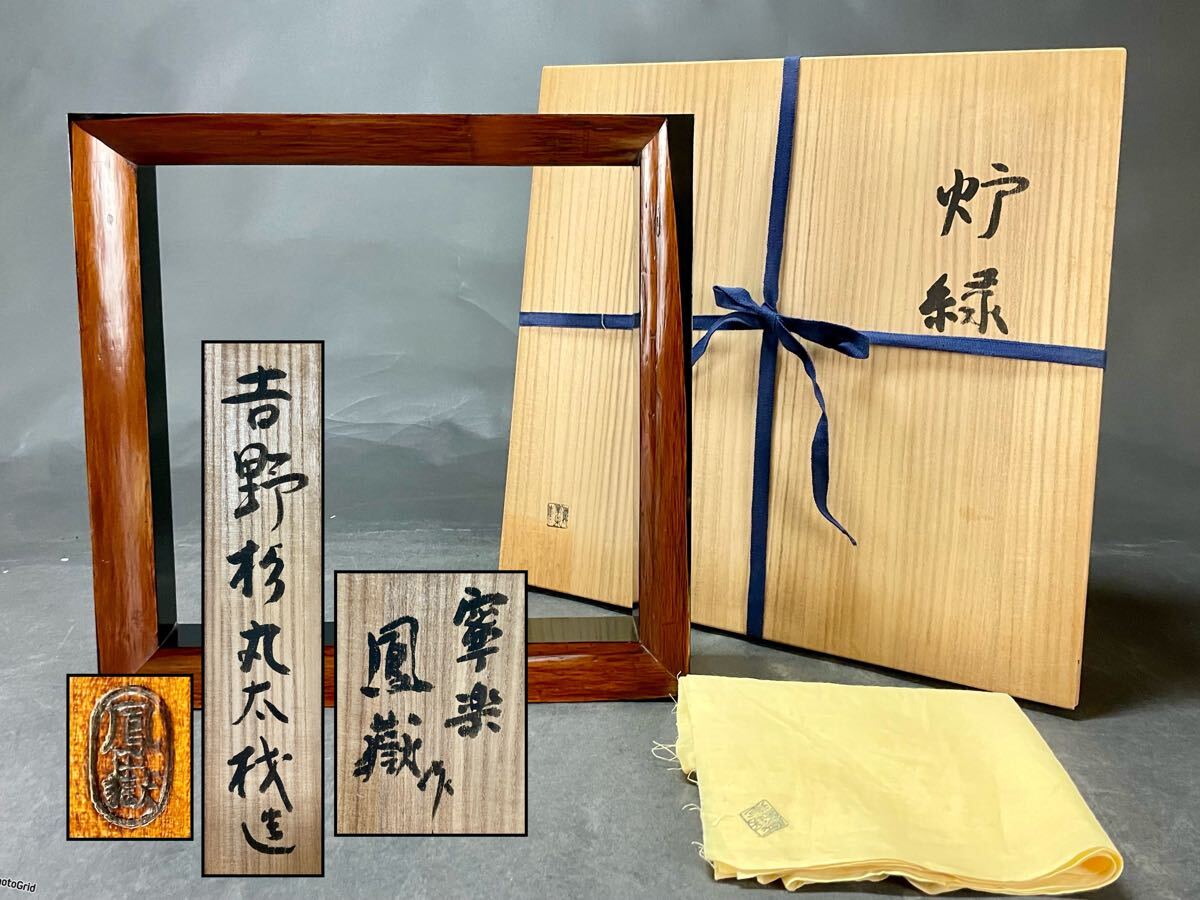 炉
縁
吉野杉丸太材造
寧楽
鳳嶽作
鳳嶽
otoGrid